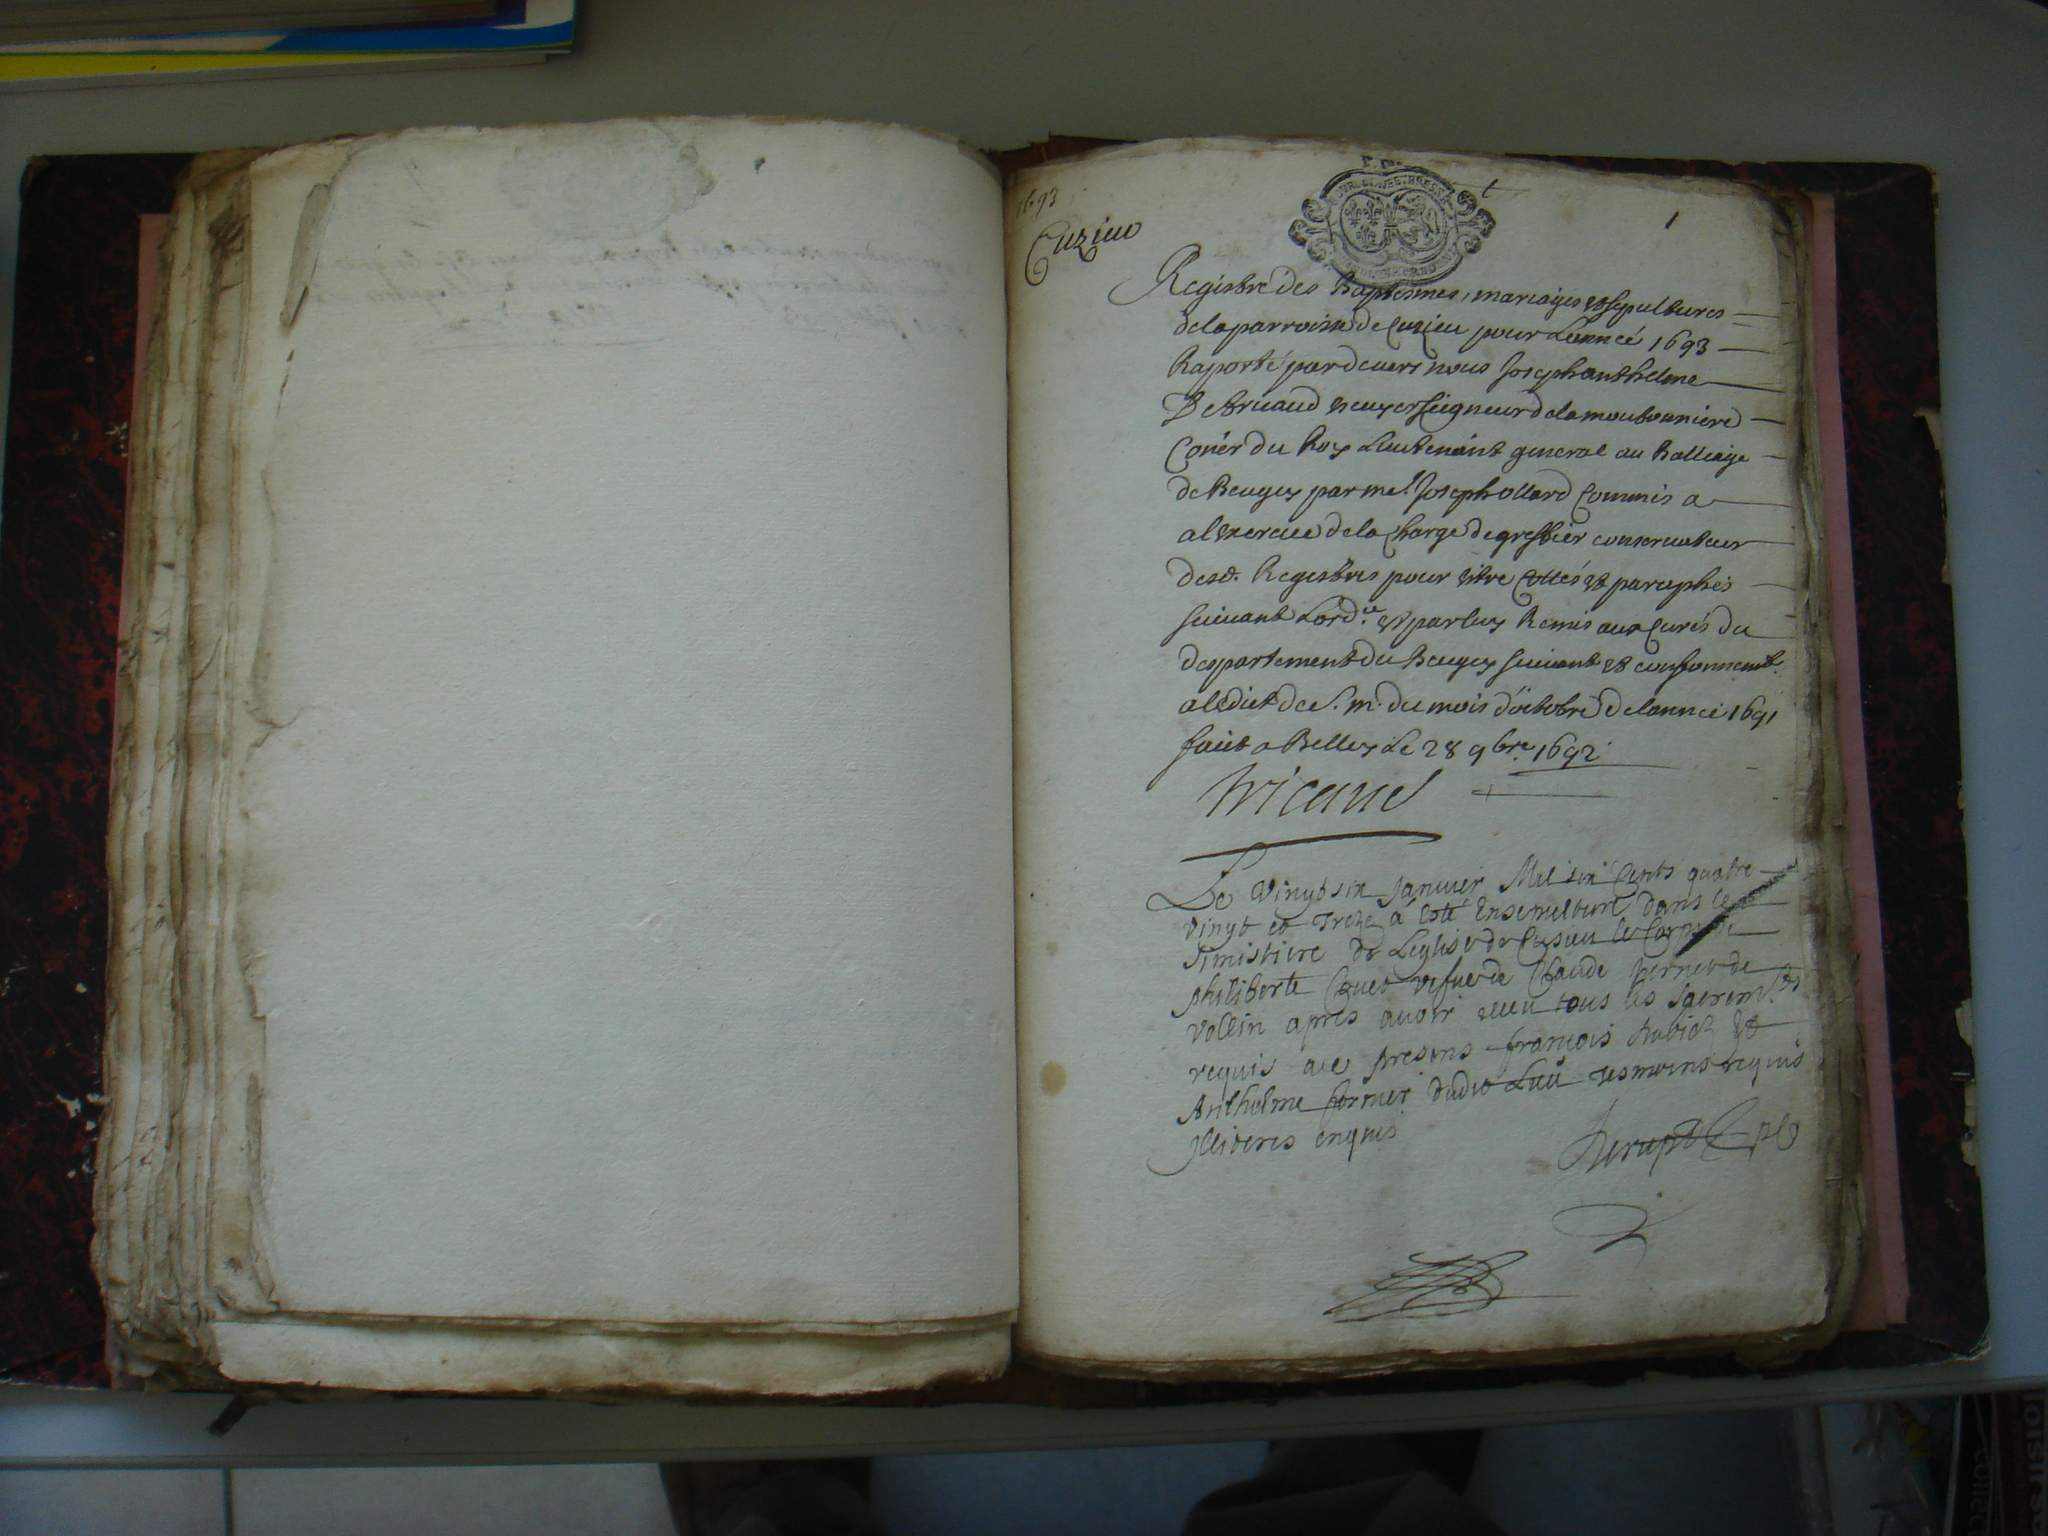 1693
Cuzieu
1
Registre des Baptesmes, mariages et sepultures
de la parroisse de Cuzieu pour Lanneé 1693
Raporté pardeuers nous Joseph anthelme
De tricaud escuyer seigneur de la
Coner du Roy Lieutenant general au Balliage
de Beugey par me Joseph ollard Commis a
a lexercice de la Charge de greffier conseruateur
desd. Registres pour estre Cottés et paraphés
suiuant Lord.ce et par luy Remis aux Curés du
despartement du Beugey suiuant et conformemt.
a ledict de S. m. du mois d'octobre de lannee 1691
faict a Belley Le 28 9bre. 1692
Tricaud
Le Vingt six Januier Mil six Cents quatre
vingt et Treze á esté Ensepulturé dans le
simistiere de Leglise de Cusieu le Corps de
philiberte vefue de Claude pernet de
vollin apres auoir receu tous les sacremts
requis ace presens francois et
Anthelme dudit Lieu tesmoins requis
Jlliteres enquis